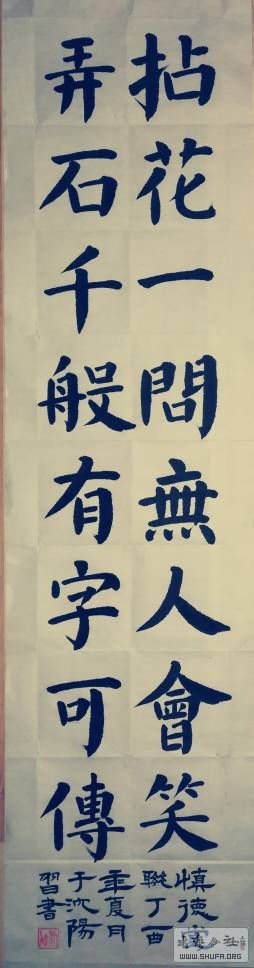 拈花一問無人會笑
弄石千般有字可傳
慎德
聯丁酉
年夏月
于沈陽
習書
WWW.SHUFA.ORG